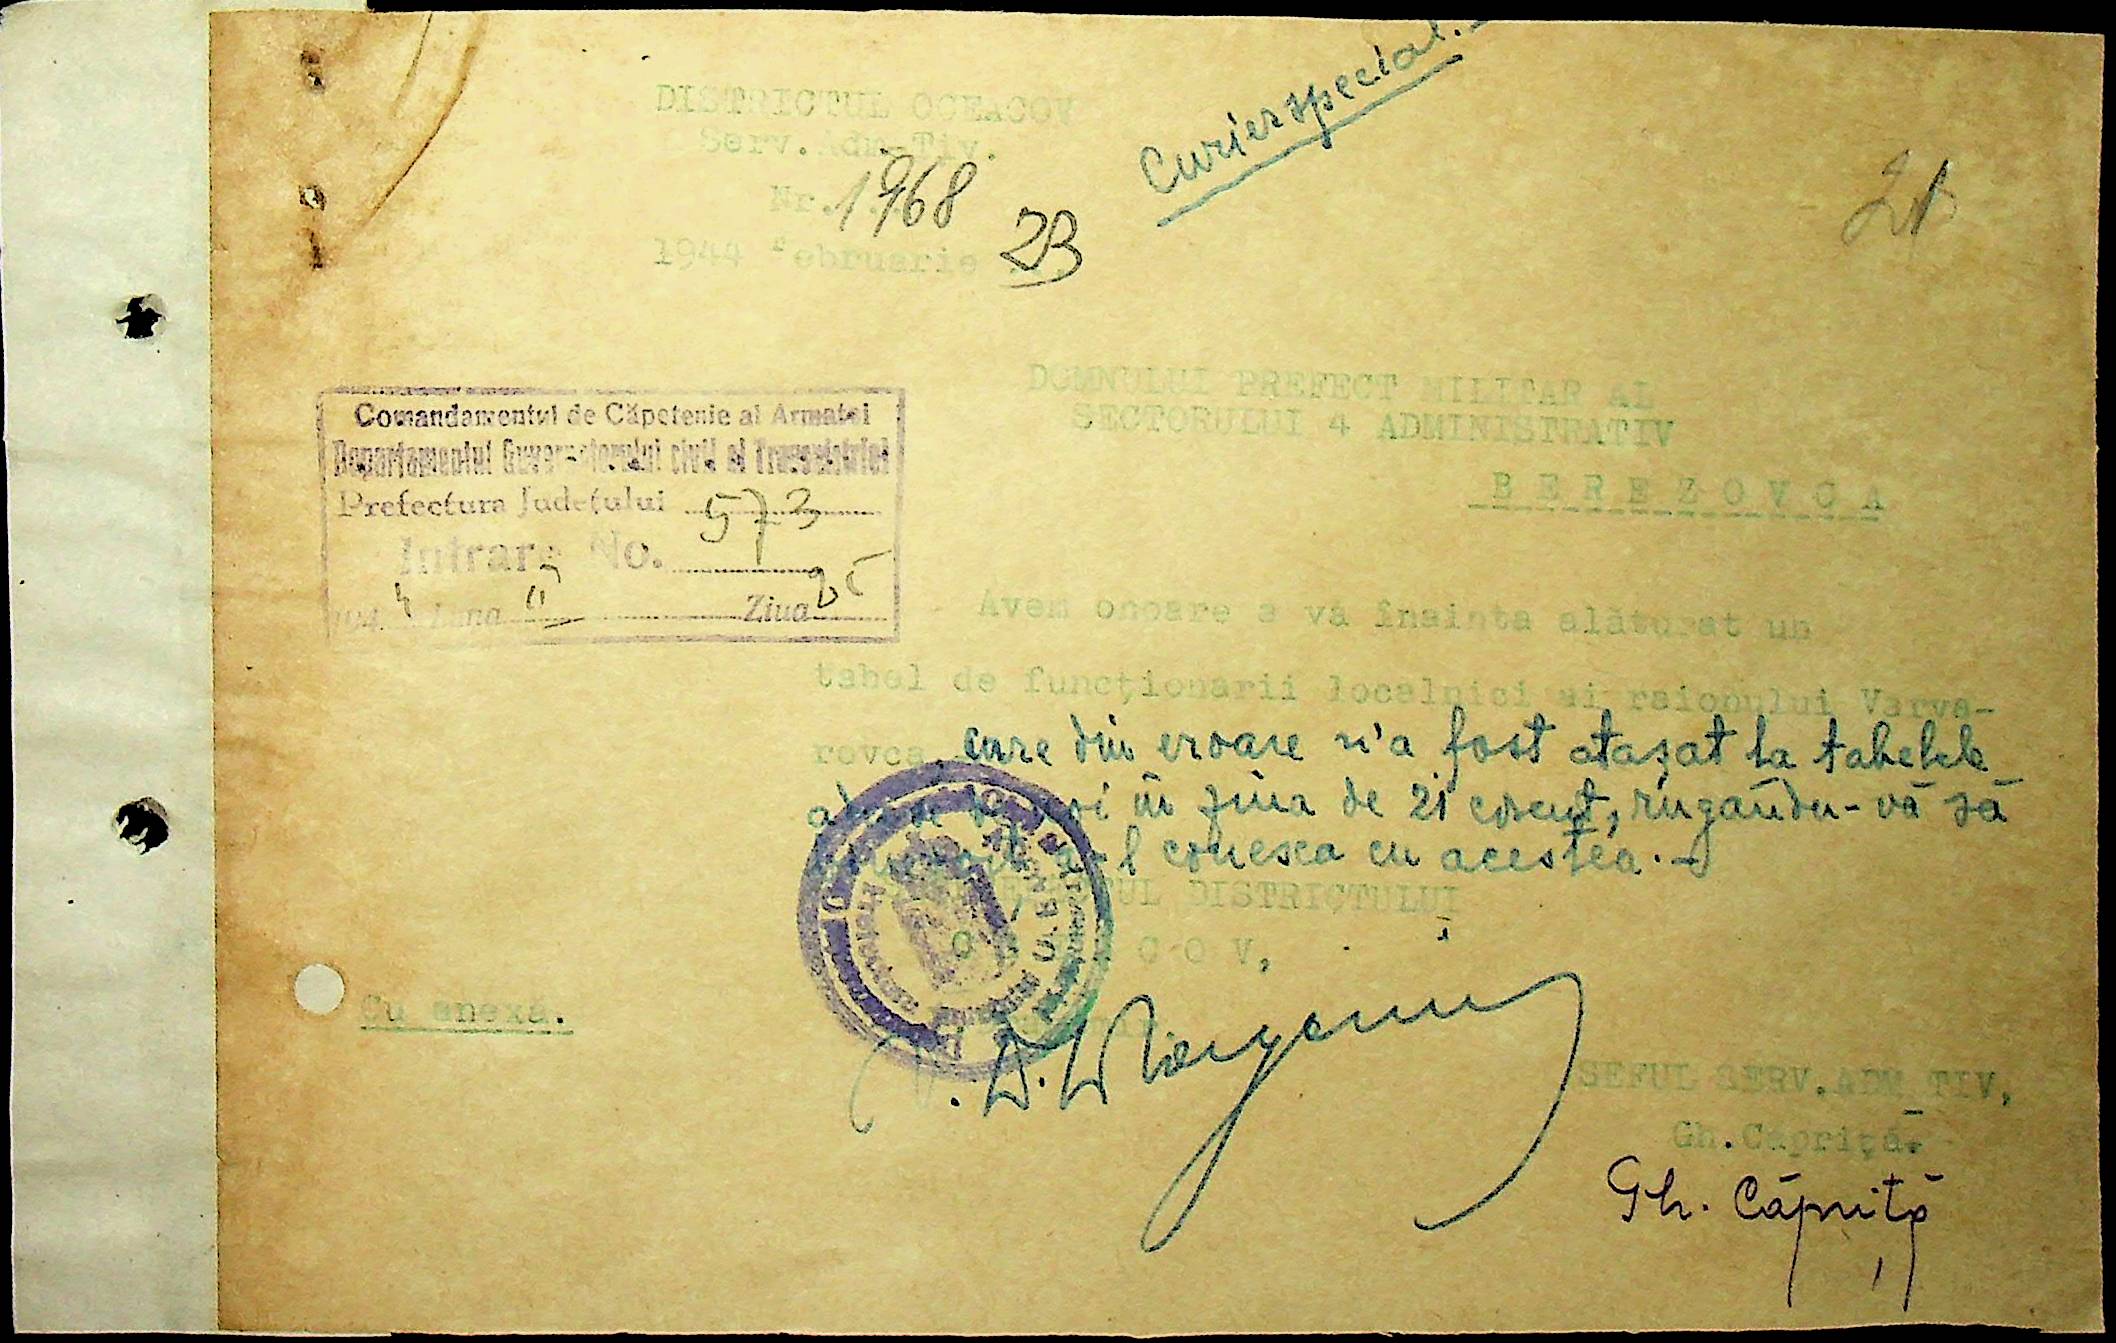 Curier special.-
DISTRICTUL OCEACOV
Serv. Adm-Tiv.
Nr. 1968
1944 februarie 23
21
DOMNULUI PREFECT MILITAR AL
SECTORULUI 4 ADMINISTRATIV
BEREZOVCA
Comandamentul de Căpetenie al Armatei
Departamentul Guvernatorului civil al Transnistriei
Prefectura Județului
Intrare No. 573
1944 Luna II Ziua 25
Avem onoare a vă înainta alăturat un
tabel de funcționarii localnici ai raionului Varva-
rovca, care din eroare n'a fost atașat la tabelele
în ziua de 21 corent, rugându-vă să
a-l conexa cu acestea.-
DISTRICTULUI
Cu anexă.
ȘEFUL SERV. ADM TIV,
Gh. Căpriță.
Gh. Căpriță